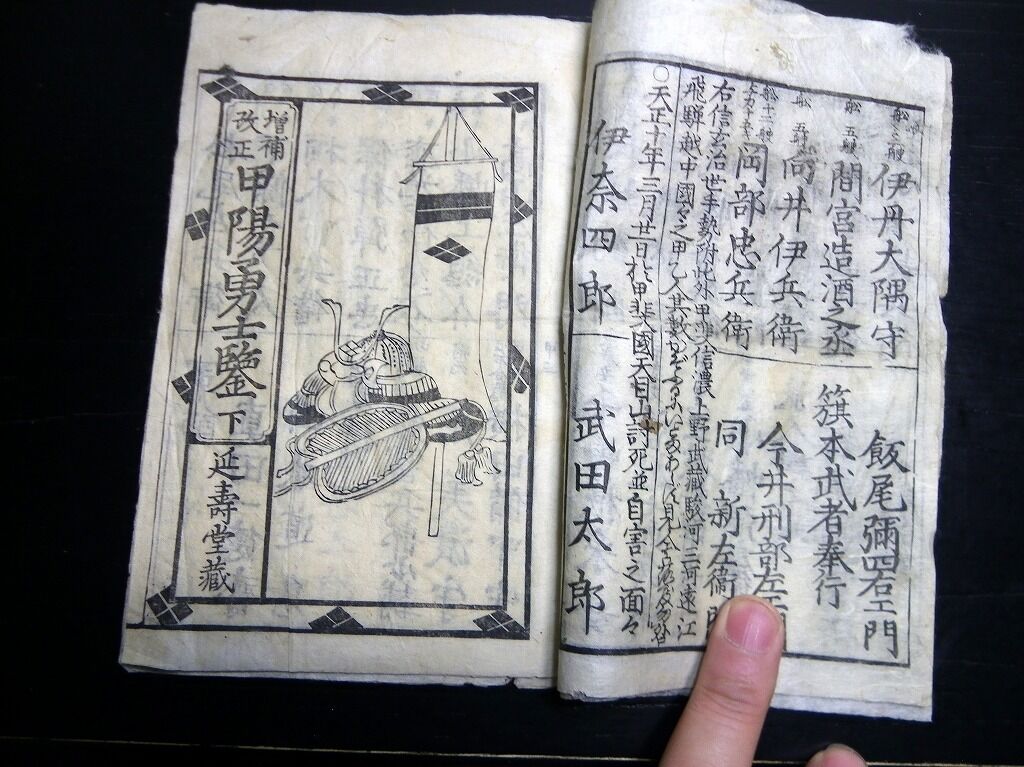 伊丹大隅守
舩 五艘
間宮造酒之丞
舩 五艘
向井伊兵衛
舩十二艘
岡部忠兵衛
飯尾彌四右エ門
簱本武者奉行
今井刑部左
同 新左衛門
右信玄治世手勢附此外甲斐信濃上野武蔵駿河三河遠江
飛騨越中國々之甲乙人其数
○天正十年三月廿一日於甲斐國天目山討死並自害之面々
伊奈四郎
武田太郎
増補
改正
甲陽勇士鑒 下
延壽堂蔵